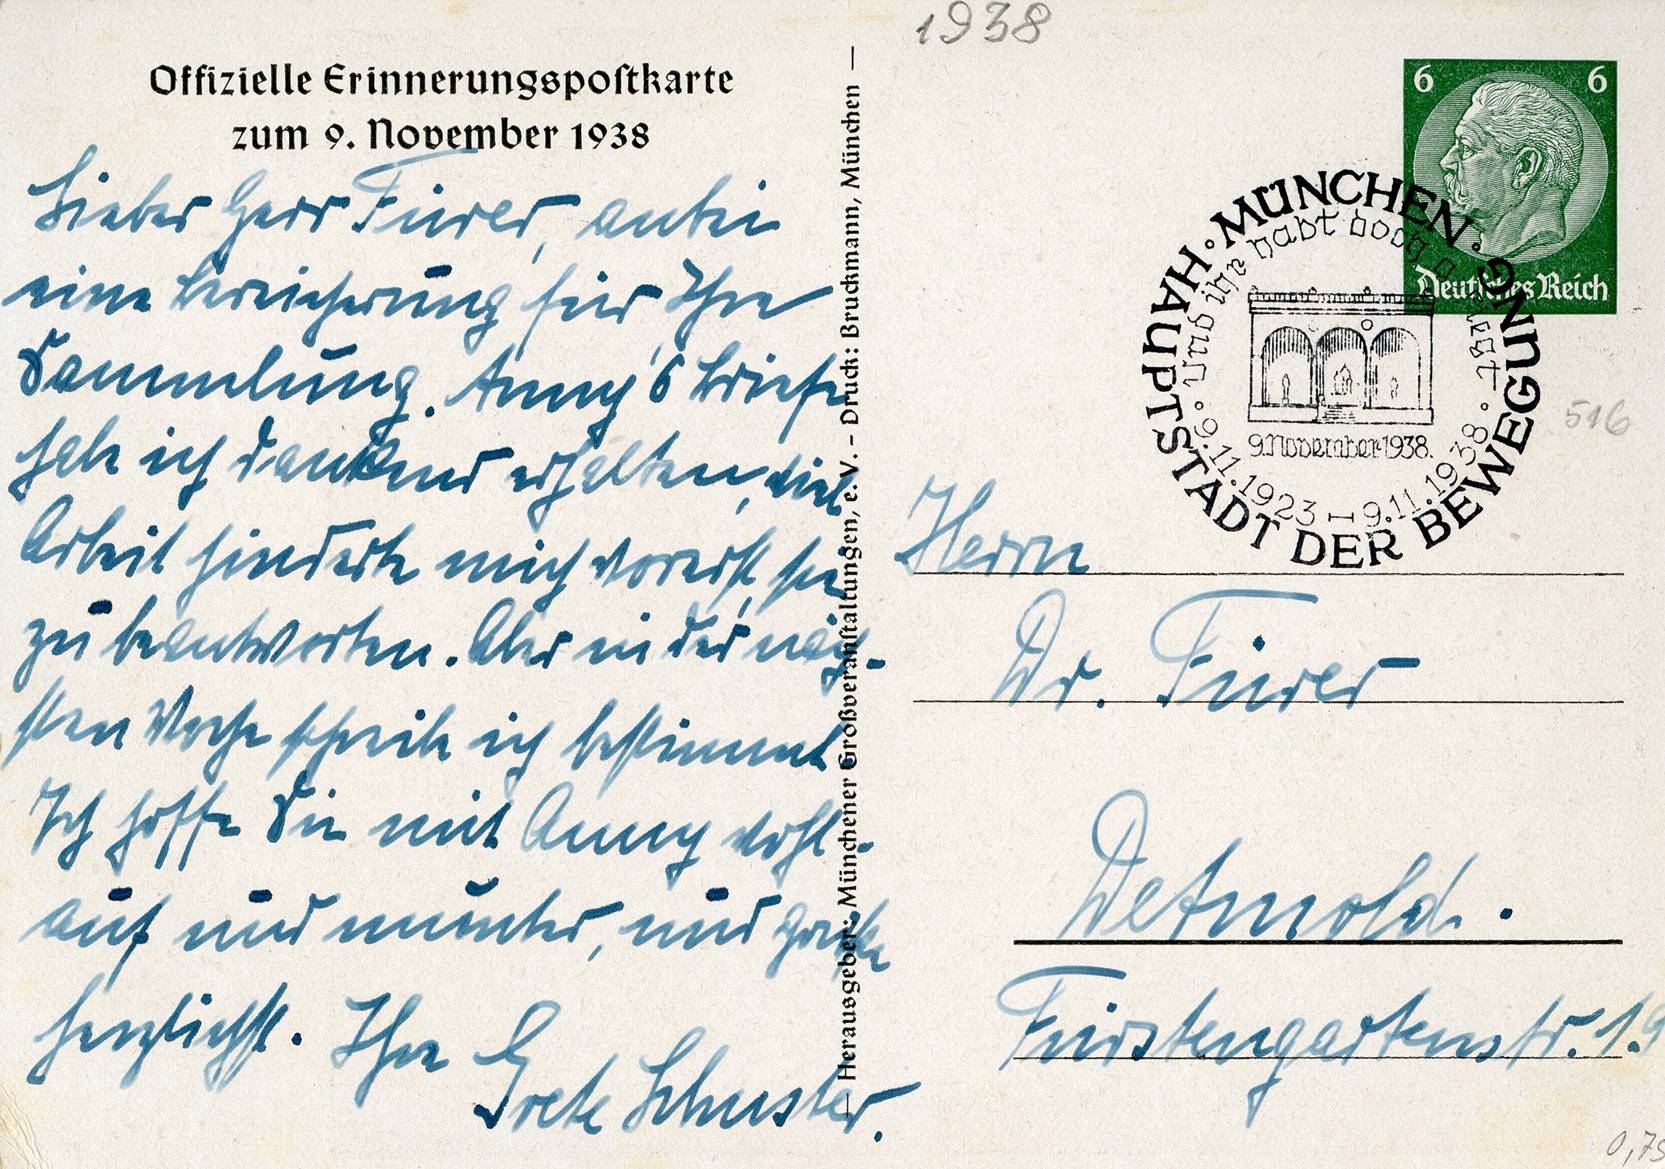 1938
Offizielle Erinnerungspostkarte
zum 9. November 1938
Lieber Herr Fürer, anbei
eine Bereicherung für Ihre
Sammlung. Anny's Briefe
habe ich dankend erhalten, viel
Arbeit hinderte mich vorerst, sie
zu beantworten. Aber in der näch-
sten Woche schreibe ich bestimmt
Ich hoffe Sie mit Anny wohl-
auf und munter, und grüße
herzlichst. Ihre
Grete Schuster.
— Herausgeber: Münchener Großveranstaltungen, e. V. – Druck: Bruckmann, München —
6 6
Deutsches Reich
MÜNCHEN · HAUPTSTADT DER BEWEGUNG ·
Und ihr habt doch gesiegt
9. November 1938.
9.11.1923 – 9.11.1938
516
Herrn
Dr. Fürer
Detmold.
Fürstengartenstr. 19
0,75